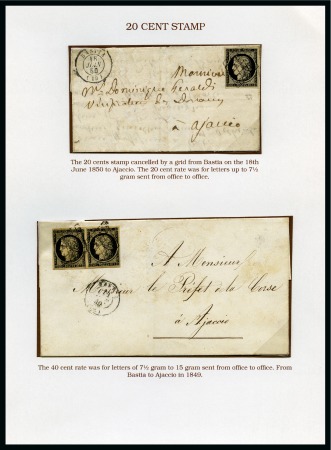 20 CENT STAMP
BASTIA
Monsieur
Mr Dominique Geraldi
à Ajaccio
The 20 cents stamp cancelled by a grid from Bastia on the 18th
June 1850 to Ajaccio. The 20 cent rate was for letters up to 7½
gram sent from office to office.
A Monsieur
Monsieur le Préfet de la Corse
à Ajaccio
The 40 cent rate was for letters of 7½ gram to 15 gram sent from office to office. From
Bastia to Ajaccio in 1849.